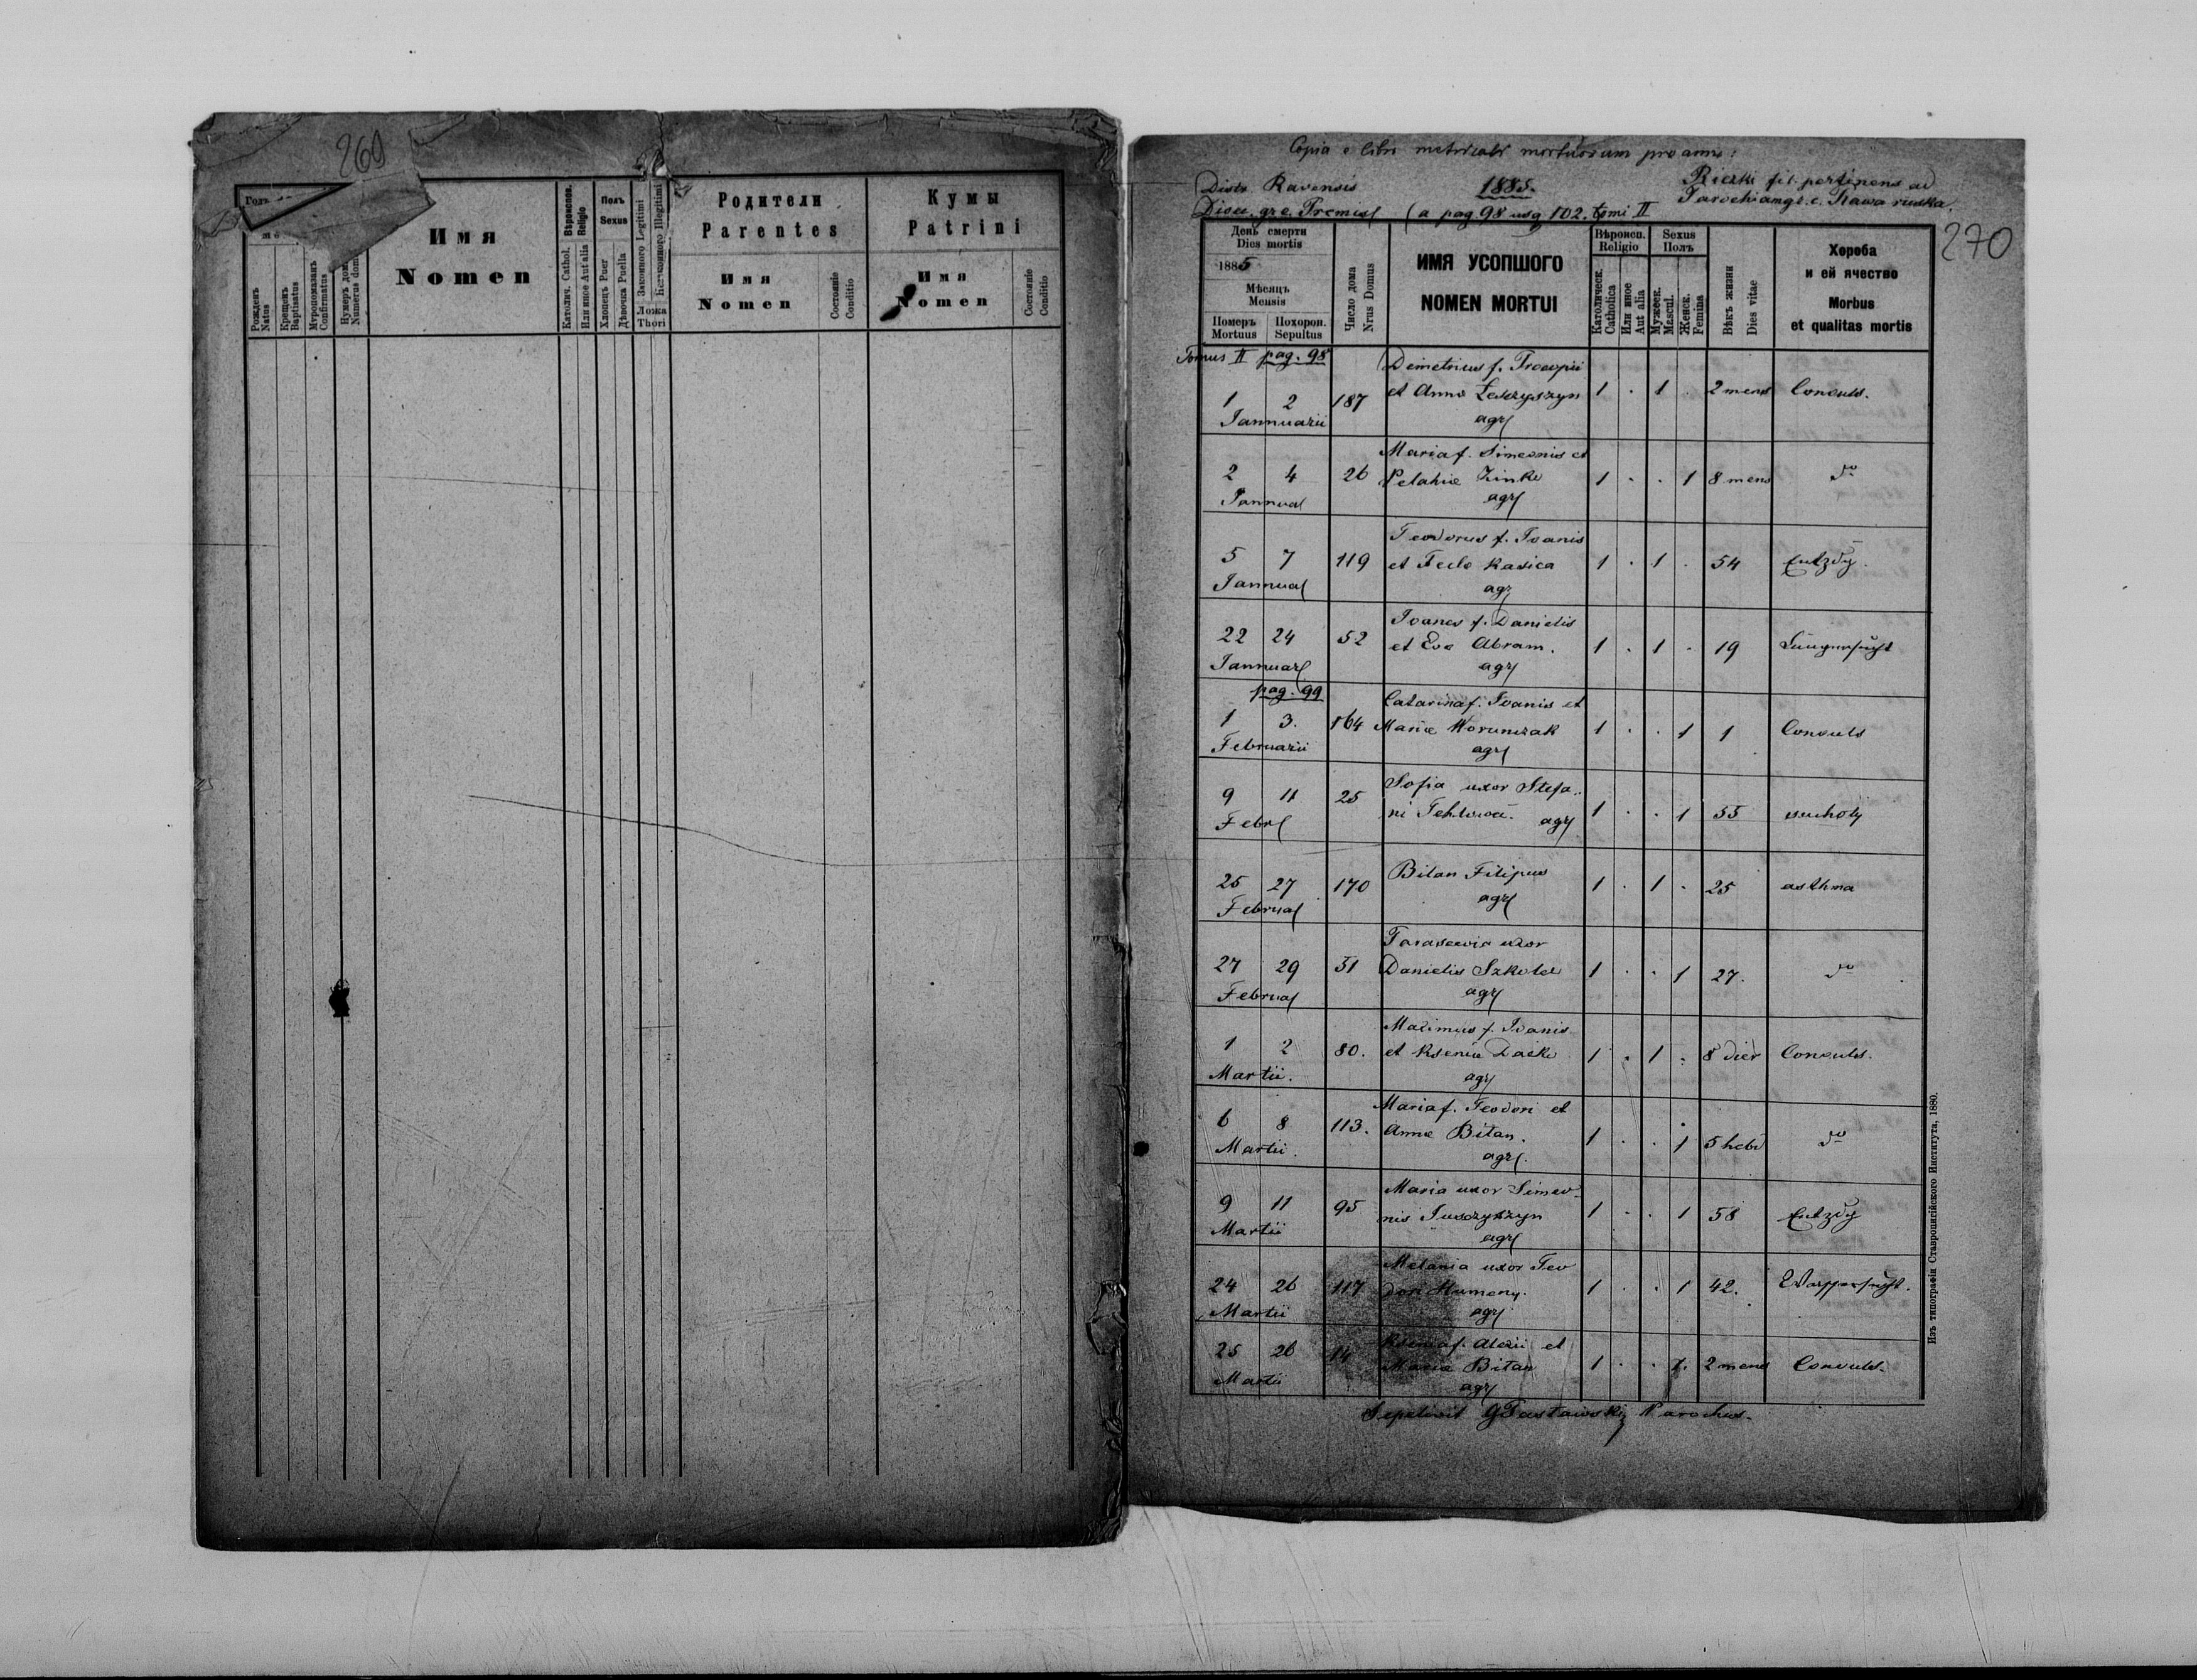 260
Годъ
Рожденъ
Natus
Крещенъ
Baptisatus
Мѵропомазанъ
Confirmatus
Нумеръ дом
Numerus dom
Имя
Nomen
Вѣроиспов.
Religio
Католич. Cathol.
Или иное Aut alia
Полъ
Sexus
Хлопецъ Puer
Дѣвочка Puella
Законного Legitimi
Беззаконного Illegitimi
Ложа
Thori
Родители
Parentes
Имя
Nomen
Состояніе
Conditio
Кумы
Patrini
Имя
Nomen
Состояніе
Conditio
Copia e libri metricali mortuorum pro anno:
Distr Ravensis 1885. Rieczki fil. pertinens ad
Dioec. gr. c. Premisl (a pag 98 usq 102. tomi II Parochiam gr. c. Rawa ruska.
270
День смерти
Dies mortis
1885
Мѣсяцъ
Mensis
Померъ
Mortuus
Похорон.
Sepultus
Число дома
Nrus Domus
ИМЯ УСОПШОГО
NOMEN MORTUI
Вѣроисп.
Religio
Католическ.
Catholica
Или иное
Aut alia
Sexus
Полъ
Мужеск.
Mascul.
Женск.
Femina
Вѣкъ жизни
Dies vitae
Хороба
и ей ячество
Morbus
et qualitas mortis
Tomus II pag. 98
Demetrius f. Procopii
1 2 187 et Anna Leszczyszyn 1 . 1 . 2 mens Convuls.
Jannuarii agr
Maria f. Simeonis et
2 4 26 Pelahia Zinko 1 . . 1 8 mens do
Jannua agr
Teodorus f. Ioanis
5 7 119 et Tecla Kasica 1 . 1 . 54 Entzdg.
Jannua agr
Ioanes f. Danielis
22 24 52 et Eva Abram. 1 . 1 . 19 Lungensucht
Jannuar agr
pag. 99
Catarina f. Ioanis et
1 3. 164 Maria Worunczak 1 . . 1 1 Convuls
Februarii agr
Sofia uxor Stefa
9 11 25 ni agr 1 . . 1 55 suchoty
Febr
Bilan Filipus
25 27 170 agr 1 . 1 . 25 asthma
Februa
Parascevia uxor
27 29 31 Danielis Szkola 1 . . 1 27. do
Februa agr
Maximus f. Ioanis
1 2 80. et Ksenia Dacko 1 . 1 . 8 dier Convuls.
Martii. agr
Maria f. Teodori et
6 8 113. Anna Bilan. 1 . . 1 5 hebd do
Martii. agr.
Maria uxor Simeo
9 11 95 nis Juszczyszyn 1 . . 1 58 Entzdg
Martii agr
Melania uxor Teo
24 26 117 dori Humeny. 1 . . 1 42. Wassersucht.
Martii agr
Ksenia f. Alexii et
25 26 14 Maria Bilan 1 . . 1. 2 mens Convuls.
Martii agr
Sepelivit Parochus.
Изъ типографіи Ставропигійского Института, 1880.